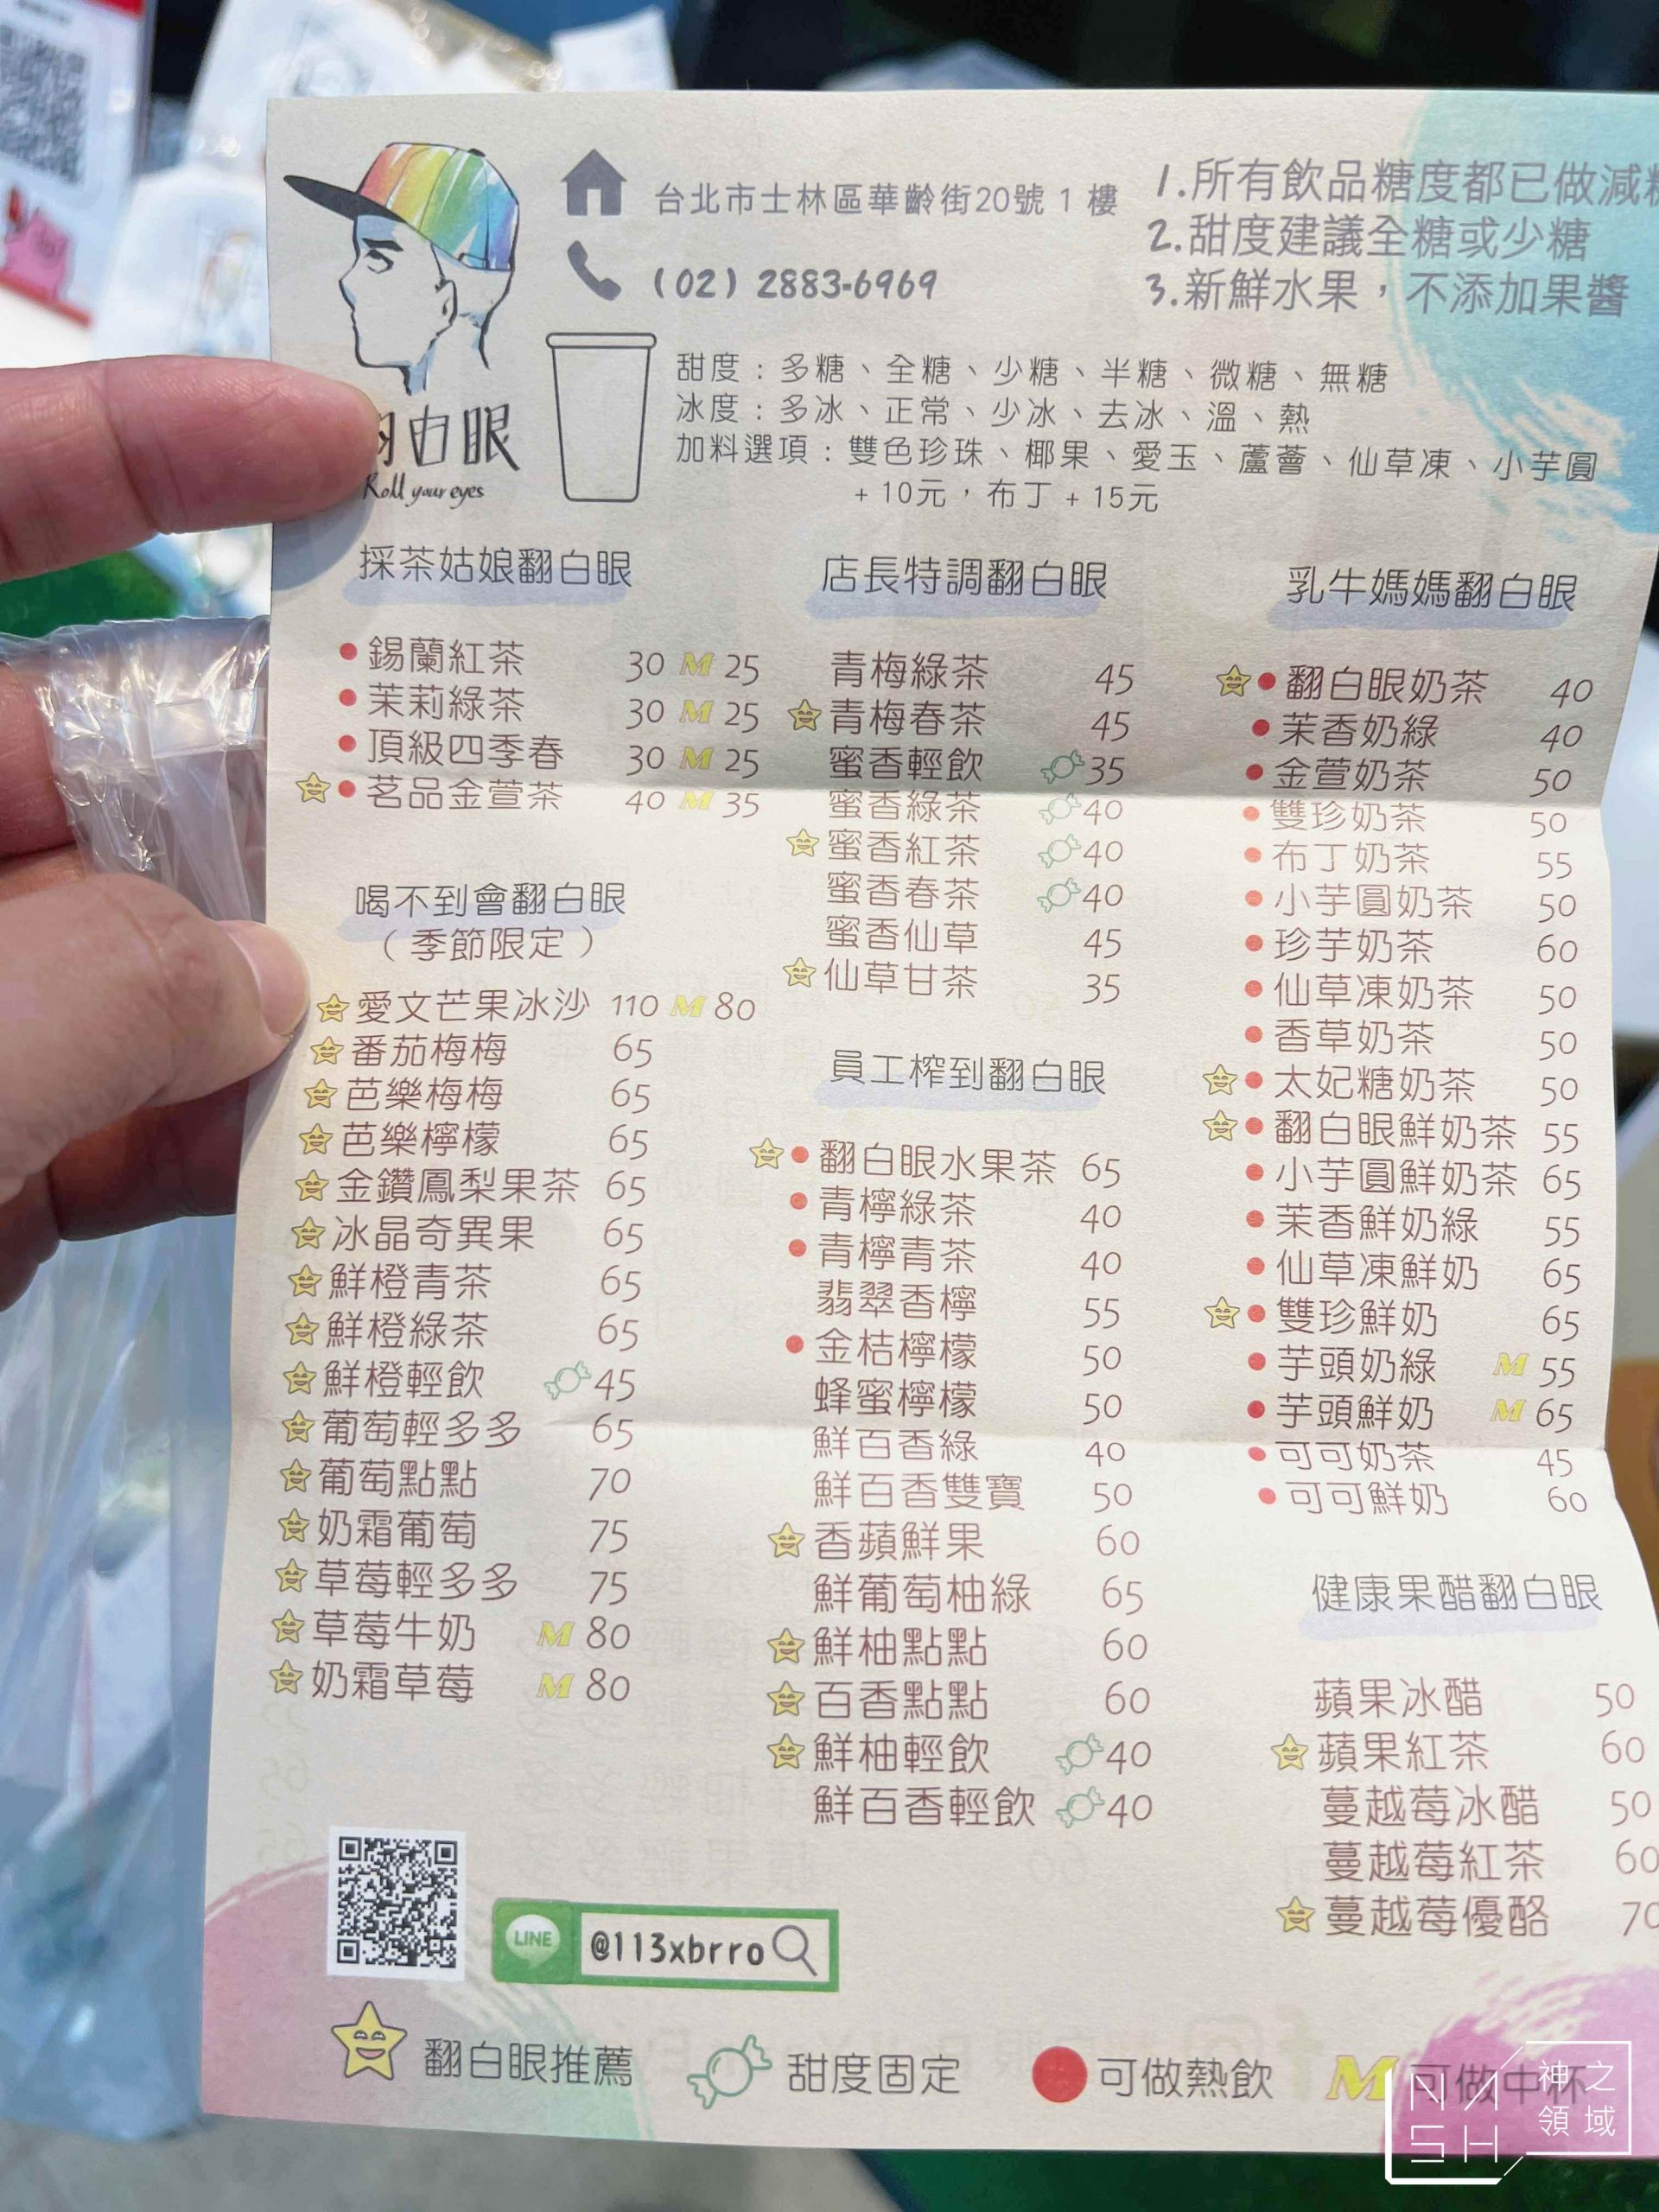 台北市士林區華齡街20號 1 樓
(02) 2883-6969
1.所有飲品糖度都已做減
2.甜度建議全糖或少糖
3.新鮮水果，不添加果醬
白眼
Roll your eyes
甜度：多糖、全糖、少糖、半糖、微糖、無糖
冰度：多冰、正常、少冰、去冰、溫、熱
加料選項：雙色珍珠、椰果、愛玉、蘆薈、仙草凍、小芋圓
+ 10元，布丁 + 15元
採茶姑娘翻白眼
錫蘭紅茶 30 M 25
茉莉綠茶 30 M 25
頂級四季春 30 M 25
茗品金萱茶 40 M 35
喝不到會翻白眼
（季節限定）
愛文芒果冰沙 110 M 80
番茄梅梅 65
芭樂梅梅 65
芭樂檸檬 65
金鑽鳳梨果茶 65
冰晶奇異果 65
鮮橙青茶 65
鮮橙綠茶 65
鮮橙輕飲 45
葡萄輕多多 65
葡萄點點 70
奶霜葡萄 75
草莓輕多多 75
草莓牛奶 M 80
奶霜草莓 M 80
店長特調翻白眼
青梅綠茶 45
青梅春茶 45
蜜香輕飲 35
蜜香綠茶 40
蜜香紅茶 40
蜜香春茶 40
蜜香仙草 45
仙草甘茶 35
員工榨到翻白眼
翻白眼水果茶 65
青檸綠茶 40
青檸青茶 40
翡翠香檸 55
金桔檸檬 50
蜂蜜檸檬 50
鮮百香綠 40
鮮百香雙寶 50
香蘋鮮果 60
鮮葡萄柚綠 65
鮮柚點點 60
百香點點 60
鮮柚輕飲 40
鮮百香輕飲 40
乳牛媽媽翻白眼
翻白眼奶茶 40
茉香奶綠 40
金萱奶茶 50
雙珍奶茶 50
布丁奶茶 55
小芋圓奶茶 50
珍芋奶茶 60
仙草凍奶茶 50
香草奶茶 50
太妃糖奶茶 50
翻白眼鮮奶茶 55
小芋圓鮮奶茶 65
茉香鮮奶綠 55
仙草凍鮮奶 65
雙珍鮮奶 65
芋頭奶綠 M 55
芋頭鮮奶 M 65
可可奶茶 45
可可鮮奶 60
健康果醋翻白眼
蘋果冰醋 50
蘋果紅茶 60
蔓越莓冰醋 50
蔓越莓紅茶 60
蔓越莓優酪 70
LINE @113xbrro
翻白眼推薦
甜度固定
可做熱飲
M 可做中杯
NASH 神之領域